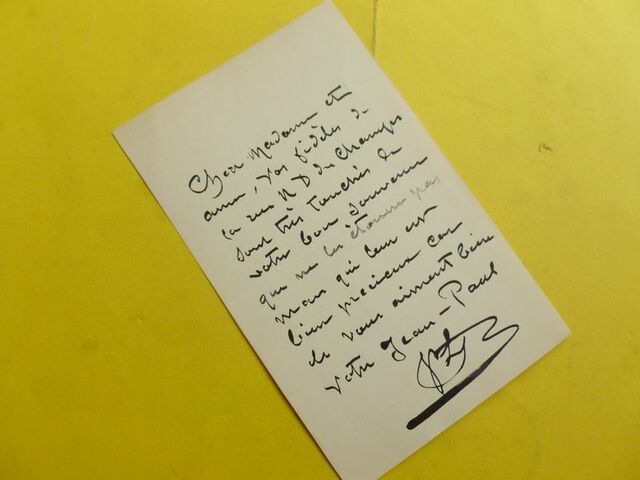 Chère Madame et
amie, vos fidèles de
la rue N D des Champs
sont très touchés de
votre bon souvenir
qui ne les étonne pas
mais qui leur est
bien précieux car
ils vous aiment bien
votre Jean-Paul